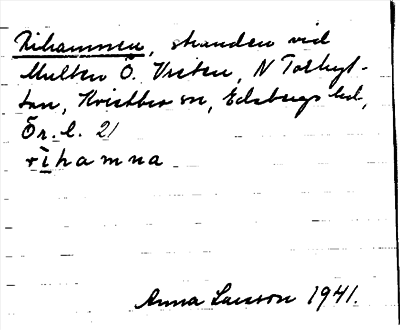 Rihamnen, stranden vid
Multen Ö. Vreten, N Tolhyt-
tan, Kvistbro sn, Edsbergs hd,
Ör. l. 21
rihamna
Anna Larsson 1941.